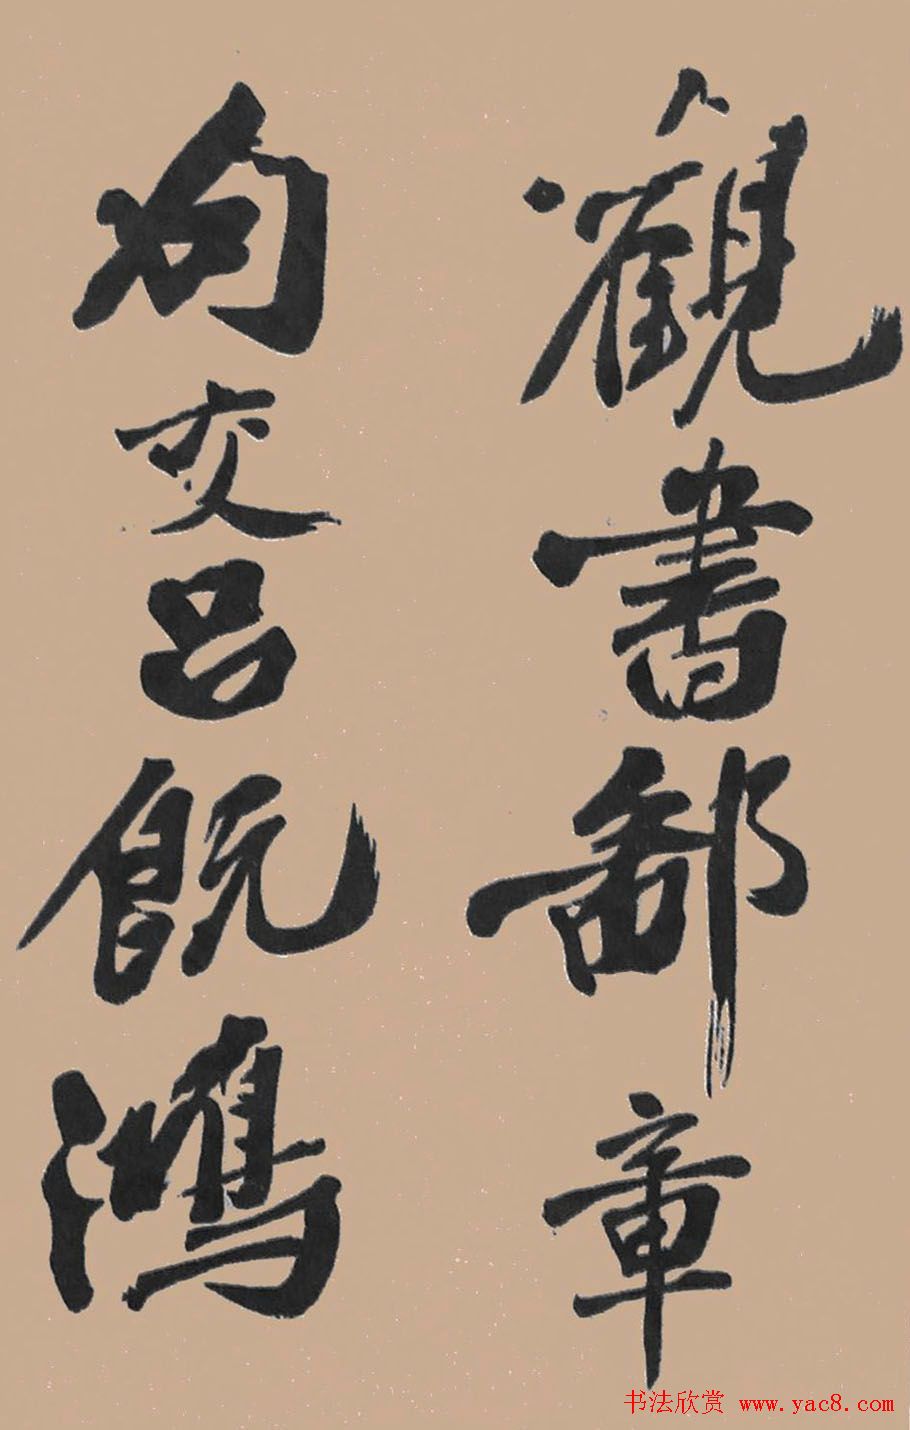 觀書鄙章
句交呂既鴻
书法欣赏 www.yac8.com